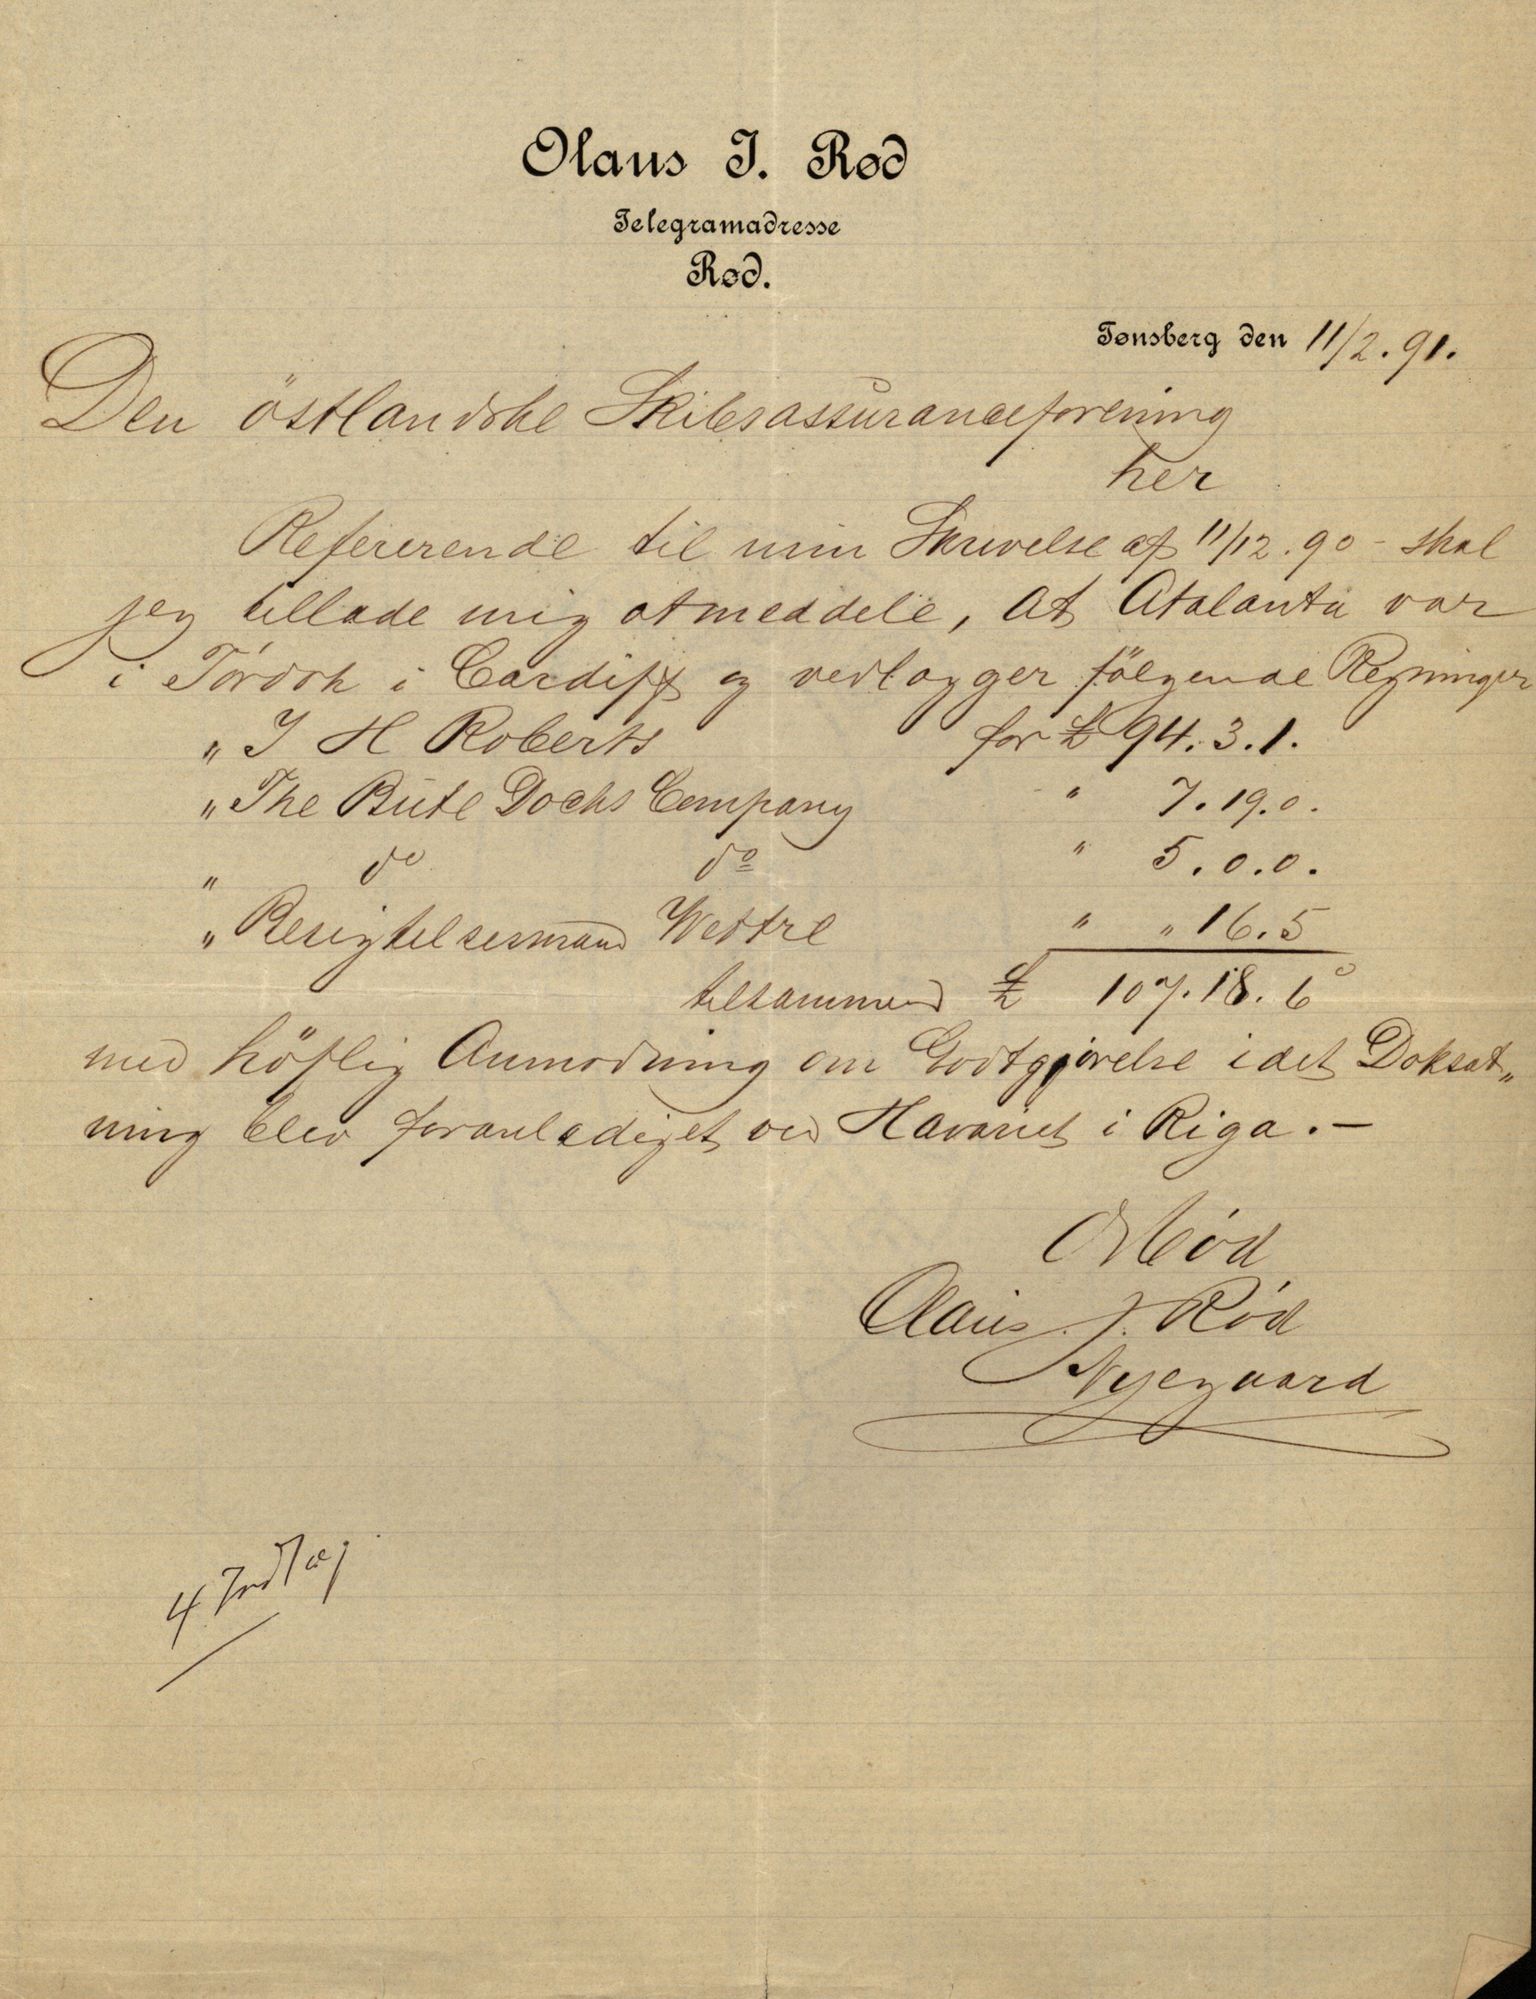 Olaus J. Rød
Telegramadresse
Rød.
Tønsberg den 11/2. 91.
Den östlandske Skibsassuranceforening
her
Refererende til min Skrivelse af 11/12. 90 - skal
jeg tillade mig at meddele, at Atalanta var
i Tórdok i Cardiff og vedlægger følgende Regninger
„ J H Roberts for £ 94. 3. 1.
„ The Bute Docks Company " 7. 19. 0.
„ do do " 5. 0. 0.
„ Besigtelsesmand Wettre " „ 16. 5
tilsammen £ 107. 18. 6
med höflig Anmodning om Godtgjørelse idet Doksæt„
ning blev foranlediget ved Havariet i Riga. —
Olaus. J. Rød
Nyegaard
4 Indlæg